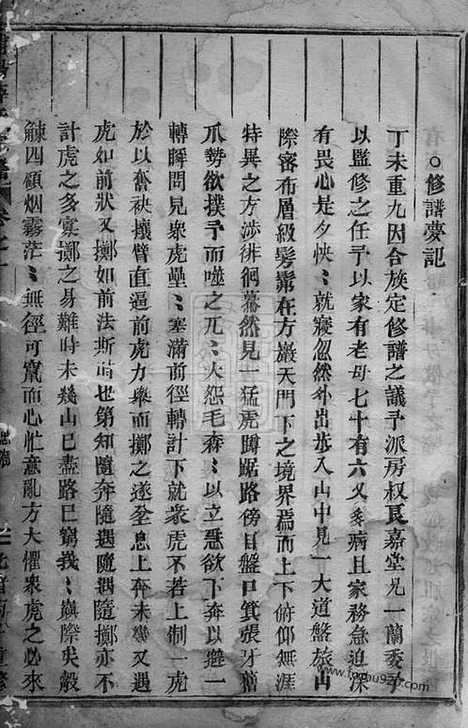 ○修譜夢記
丁未重九因合族定修譜之議予派房叔艮嘉堂兄一蘭委予
以監修之任予以家有老母七十有六又多病且家務急迫深
有畏心是夕怏〻就寢忽然外出恭入山中見一大道盤旅山
際審布層級髣髴在方巖天門下之境界焉而上下俯仰無涯
特異之方涉徘徊驀然見一猛虎蹲踞路傍目盤口箕張牙舊
爪勢欲撲予而噬之兀〻火怨毛森〻以立意欲下奔以避一
轉瞬間見衆虎壘〻塞滿前徑轉計下就衆虎不若上制一虎
於以奮袂攘臂直逼前虎力舉而擲之遂至息上奔未幾又遇
虎如前狀又擲如前法斯時也第知隨奔隨遇隨遇隨擲亦不
計虎之多寡擲之易難時未幾山已盡路已窮我〻巔際尖觳
觫四顧烟霧茫〻無徑可竄而心忙意亂方大懼衆虎之必來
卷之一